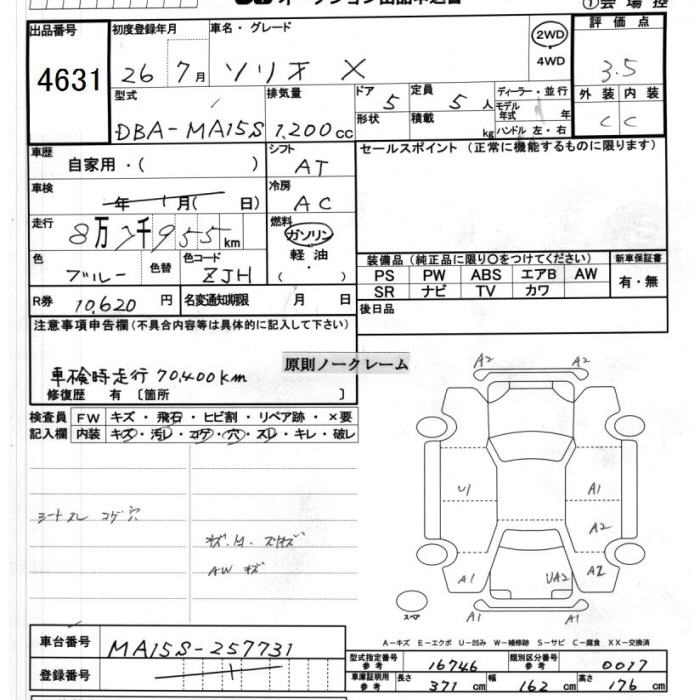 オークション出品申込書
①会場控
出品番号 初度登録年月 車名・グレード 評価点
4631 26 7月 ソリオ X 2WD 4WD 3.5
型式 排気量 ドア 定員 ディーラー・並行 外装 内装
DBA-MA15S 1,200cc 5 5人 モデル年式 年 C C
形状 積載 kg ハンドル 左・右
車歴 シフト セールスポイント (正常に機能するものに限ります)
自家用・( ) AT
車検 冷房
年 月( 日) AC
走行 燃料
8万7千955km ガソリン
軽油
( )
色 色替 色コード 装備品(純正品に限り○をつけてください) 新車保証書
ブルー ZJH PS PW ABS エアB AW 有・無
SR ナビ TV カワ
R券 10,620円 名変通知期限 月 日 後日品
注意事項申告欄(不具合内容等は具体的に記入して下さい)
原則ノークレーム
車検時走行 70,400km
修復歴 有 〔箇所 〕
検査員 FW キズ・飛石・ヒビ割・リペア跡・×要
記入欄 内装 キズ・汚レ・コゲ・穴・スレ・キレ・破レ
シートスレ コゲ穴
AW キズ
A2 A2
U1 A1
A2
A1 UA2 A2
スペア A1 A1
車台番号 MA15S-257731
A-キズ E-エクボ U-凹み W-補修跡 S-サビ C-腐食 XX-交換済
登録番号
型式指定番号 参考 16746 類別区分番号 参考 0017
車庫証明用 参考 長さ 371cm 幅 162cm 高さ 176cm